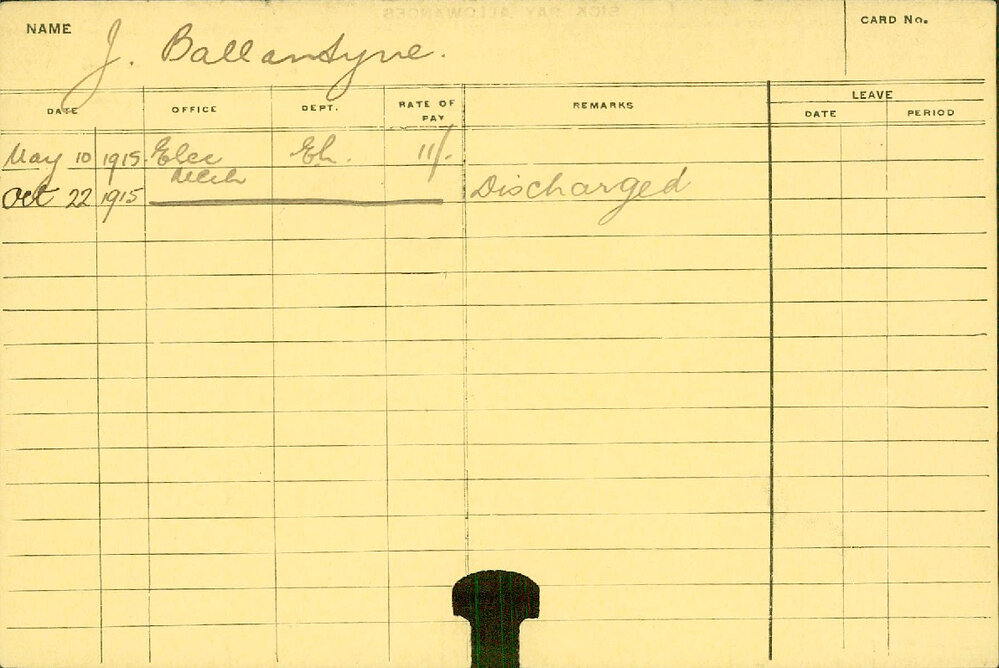 SICK PAY ALLOWANCES
NAME J. Ballantyne. CARD No.
DATE OFFICE DEPT. RATE OF PAY REMARKS LEAVE
DATE PERIOD
May 10 1915 Elec Mech El. 11/-
Oct 22 1915 Discharged